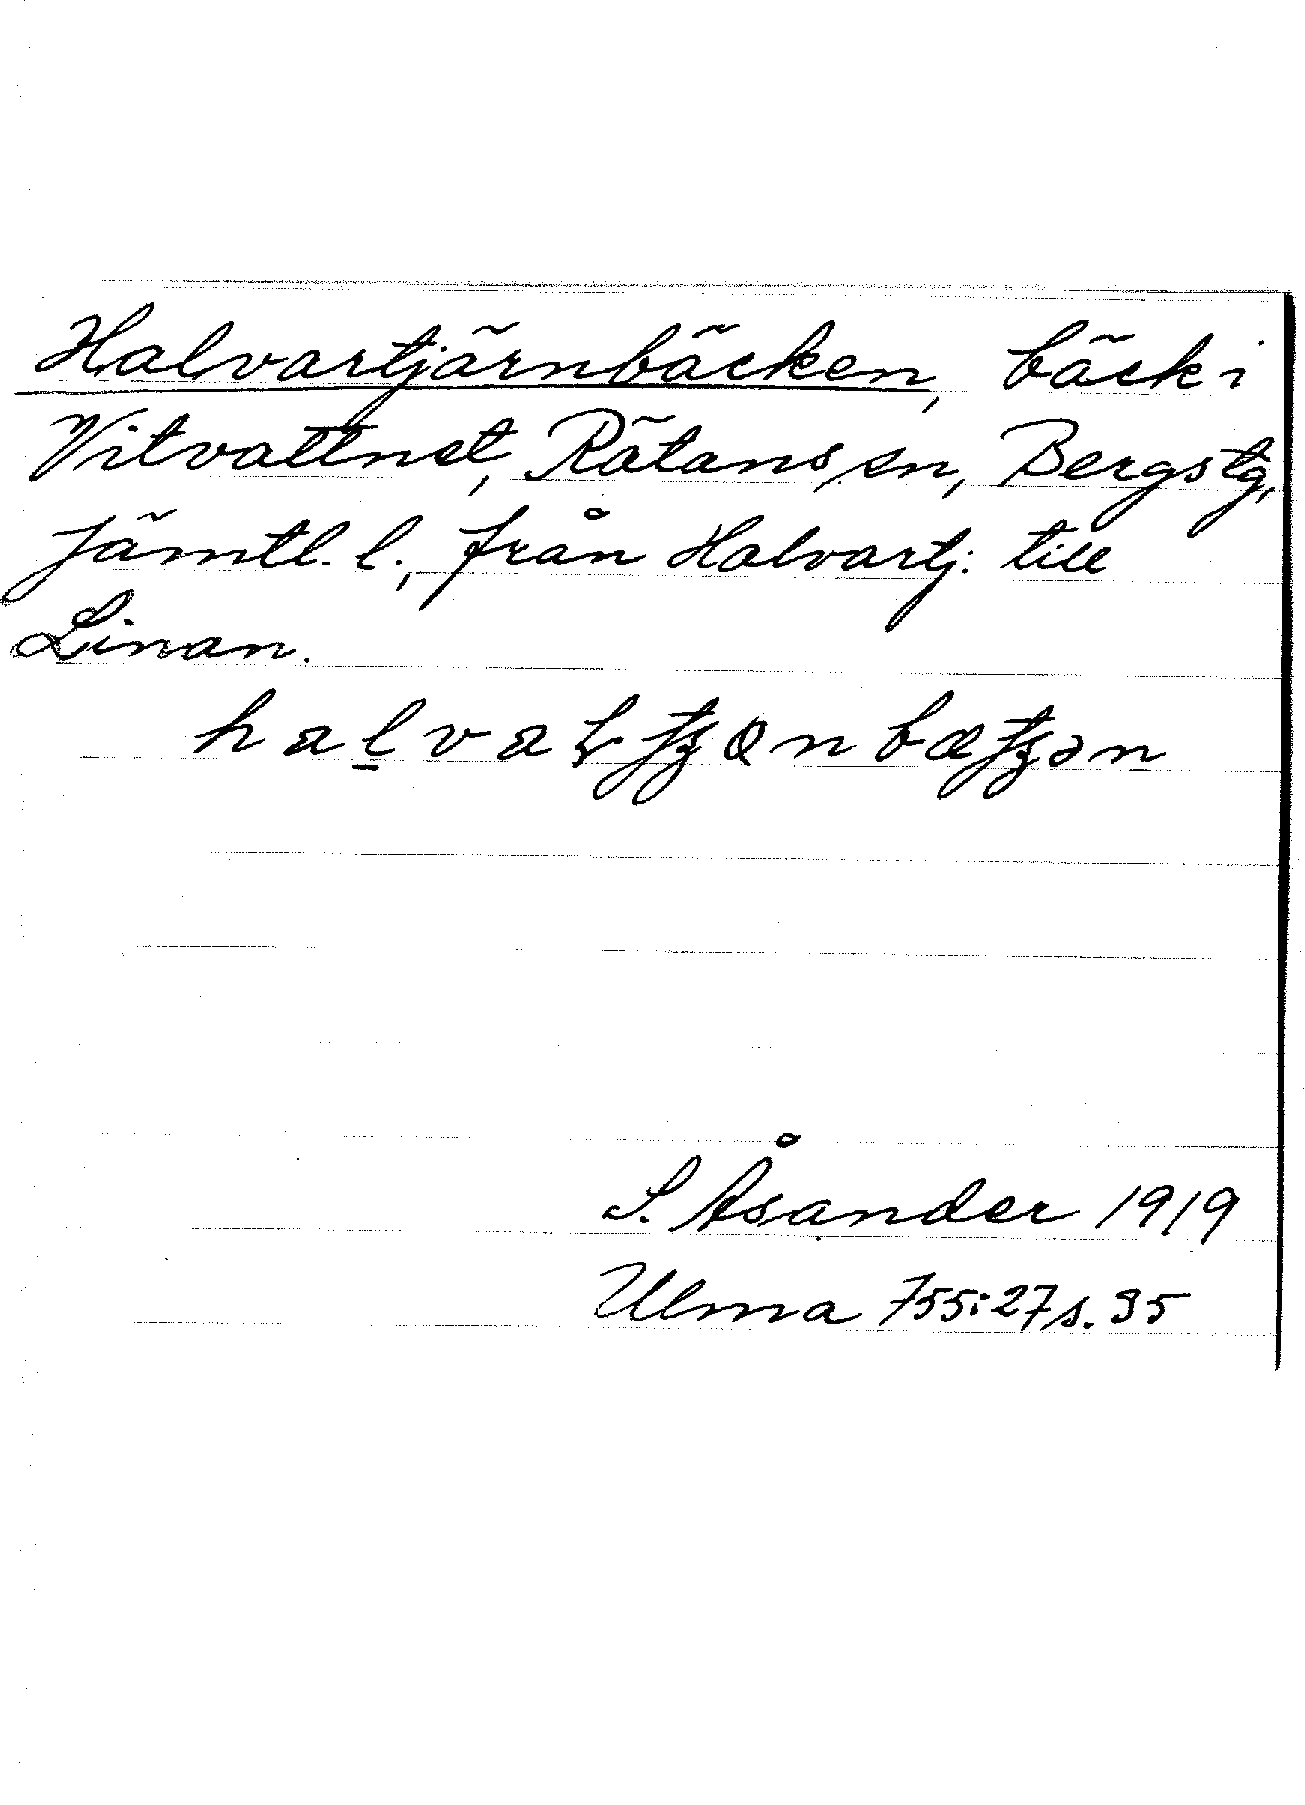 Halvartjärnbäcken, bäck i
Vitvattnet, Rätans sn, Bergs tg,
Jämtl. l., från Halvartj: till
Linan.
S. Åsander 1919
Ulma 755:27 s. 35